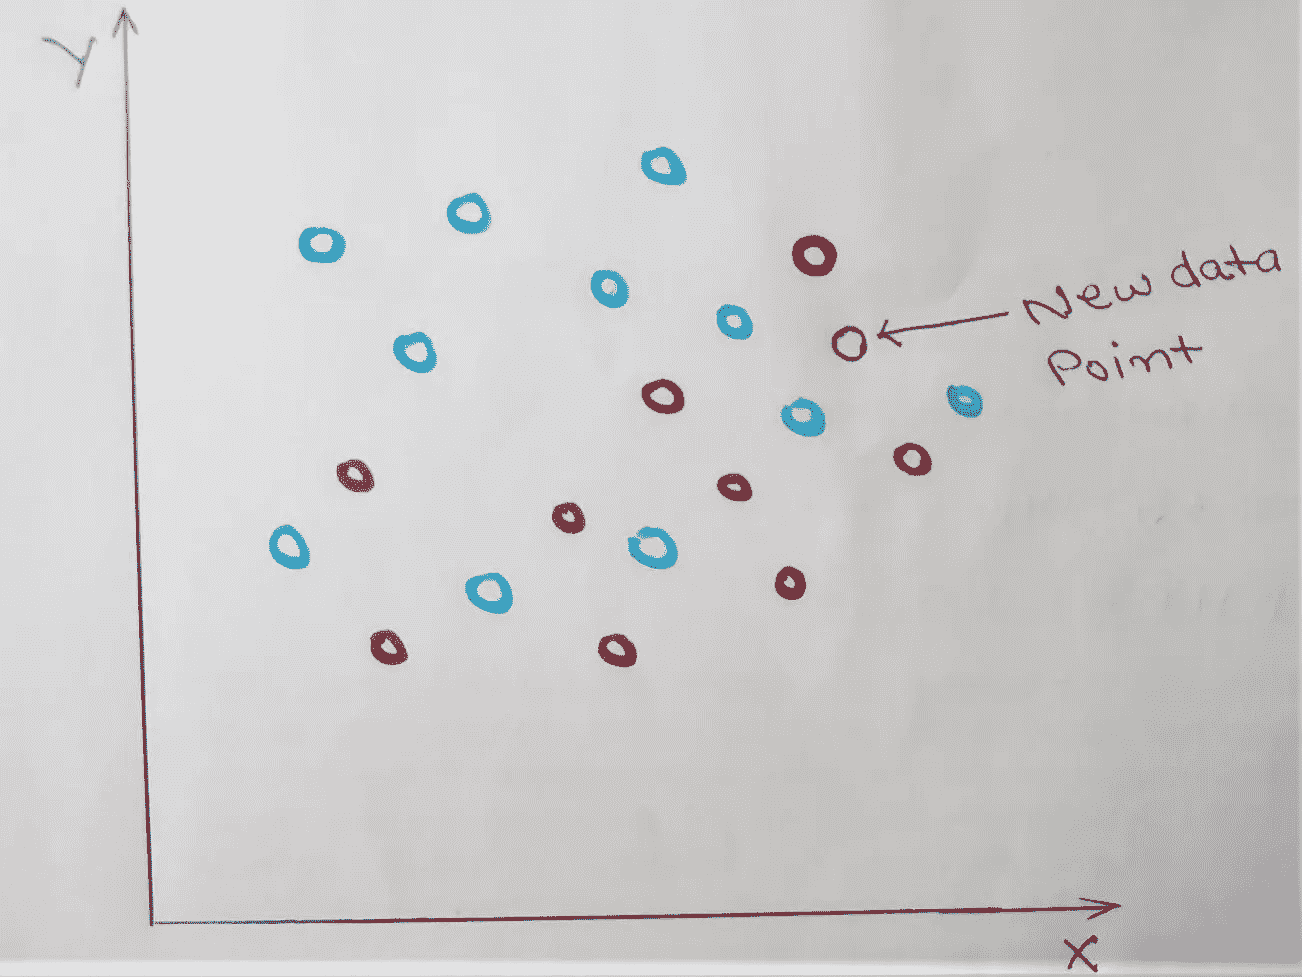 Y
New data
Point
X